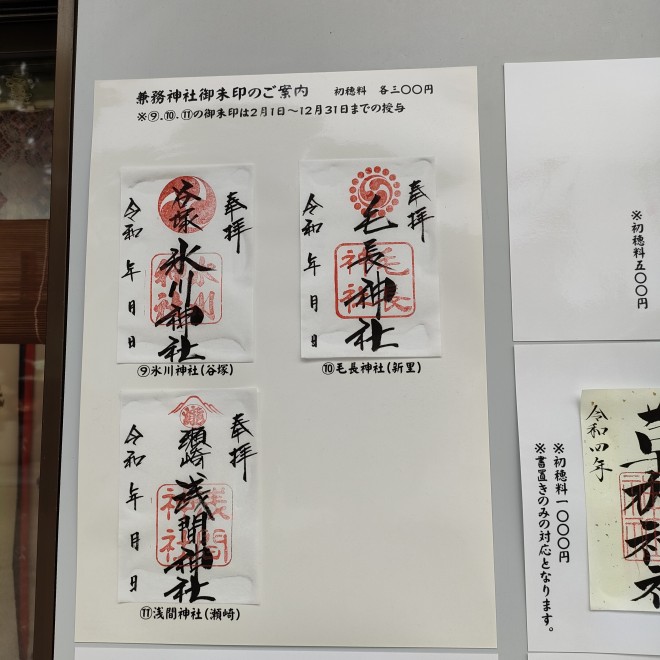 兼務神社御朱印のご案内　初穂料　各三〇〇円
※⑨.⑩.⑪の御朱印は2月1日～12月31日までの授与
奉拝
谷塚 氷川神社
令和 年 月 日
⑨氷川神社(谷塚)
奉拝
毛長神社
令和 年 月 日
⑩毛長神社(新里)
奉拝
瀬崎 浅間神社
令和 年 月 日
⑪浅間神社(瀬崎)
※初穂料五〇〇円
※初穂料一〇〇〇円
※書置きのみの対応となります。
令和四年